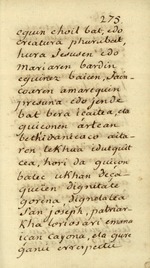 275
eguin choil bat, edo
creatura phurubat,
hura Jesusen edo
Mariaren bardin
eguinez baicen, Jain-
coaren amarequin
presuna edo jende
bat bera icaitea, eta
guiçonen artean
becki
ren lekhua idukguit
cea, hori da guiçon
batec ukhan deça-
queien dignitate
gorena, dignitatea
San joseph, patriar-
kha loriosari emana
ican çayona, eta gure
ganic errespectu